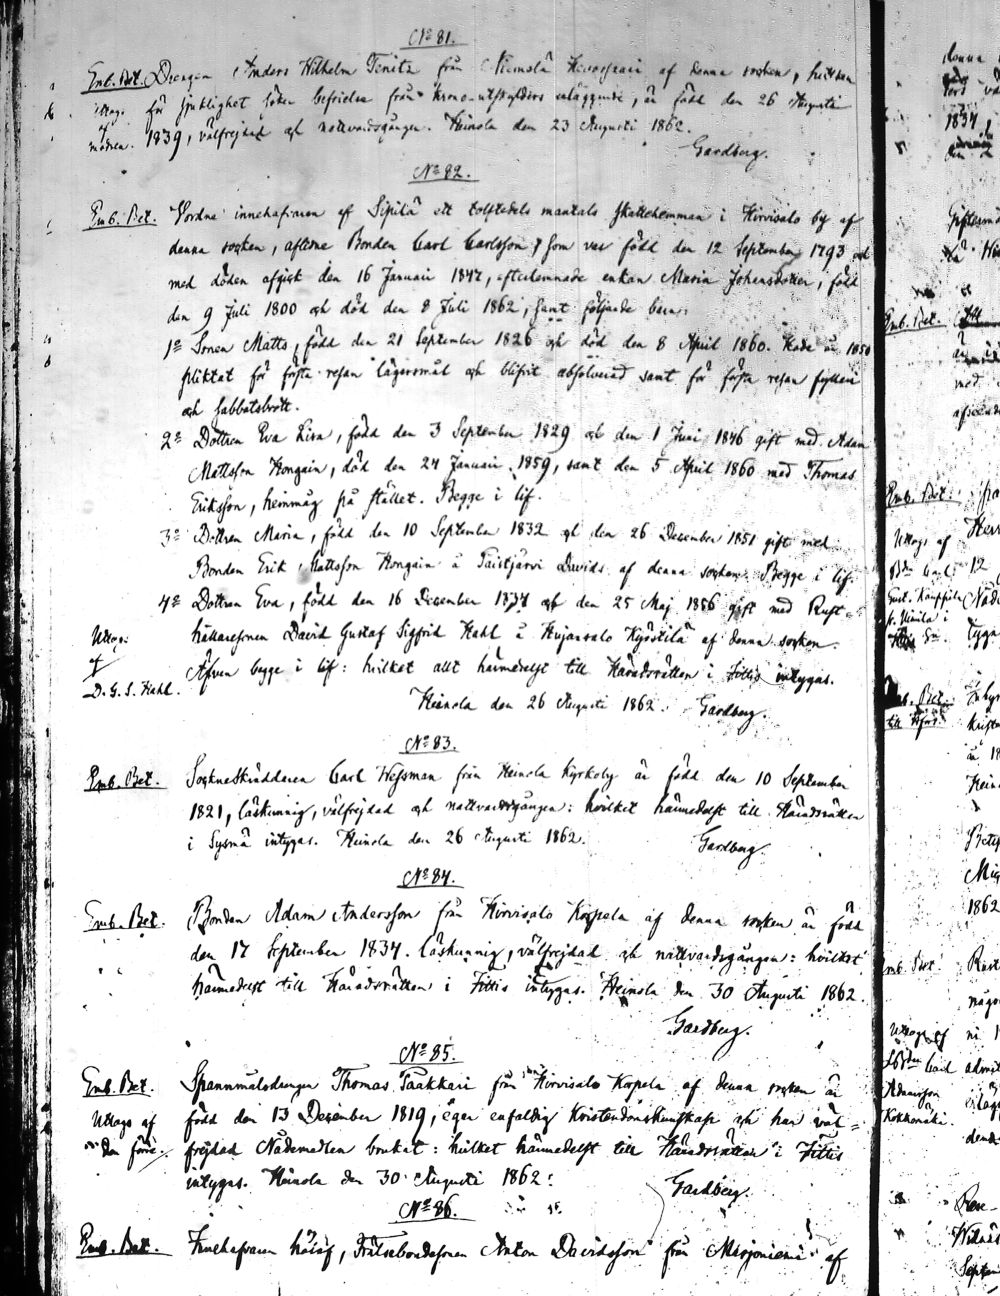 No 81.
Emb. Bet. Drengen Anders Wilhelm Tenita från Niemelä af denna socken, hvilken
Uttags för sjuklighet söker befrielse från Krono-utskylders erläggande, är född den 26 Augusti
af modren. 1839, välfrejdad och nattvardsgången. Heinola den 23 Augusti 1862.
Gardberg.
No 82.
Emb. Bet. Vordne innehafvaren af Sipilä ett tolftedels mantals skattehemman i Hirvisalo by af
denna socken, aflidne Bonden Carl Carlsson, som var född den 12 September 1793 och
med döden afgick den 16 Januari 1847, efterlemnade enkan Maria Johansdotter, född
den 9 Juli 1800 och död den 8 Juli 1862, samt följande barn:
1o Sonen Matts, född den 21 September 1826 och död den 8 April 1860. Hade år 1850
pliktat för första resan lägersmål och blifvit absolverad samt för första resan fylleri
och sabbatsbrott.
2o Dottren Eva Lisa, född den 3 September 1829 och den 1 Juni 1846 gift med Adam
Mattsson Kongain, död den 24 Januari 1859, samt den 5 April 1860 med Thomas
Eriksson, hemmåg på stället. Begge i lif.
3o Dottren Maria, född den 10 September 1832 och den 26 December 1851 gift med
Bonden Erik Mattsson Kongain å Taistjärvi Davids af denna socken. Begge i lif.
4o Dottren Eva, född den 16 December 1834 och den 25 Maj 1856 gift med Rust-
Uttags hållaresonen David Gustaf Sigfrid Hahl å Kujansalo Kyöstilä af denna socken.
af Äfven begge i lif: hvilket allt härmedelst till Häradsrätten i Iittis intygas.
D. G. S. Hahl. Heinola den 26 Augusti 1862. Gardberg.
No 83.
Emb. Bet. Sockneskräddaren Carl Wessman från Heinola Kyrkoby är född den 10 September
1821, läskunnig, välfrejdad och nattvardsgången: hvilket härmedelst till Häradsrätten
i Sysmä intygas. Heinola den 26 Augusti 1862.
Gardberg.
No 84.
Emb. Bet. Bonden Adam Andersson från Hirvisalo Korpela af denna socken är född
den 17 September 1834. läskunnig, välfrejdad och nattvardsgången: hvilket
härmedelst till Häradsrätten i Iittis intygas. Heinola den 30 Augusti 1862.
Gardberg.
No 85.
Emb. Bet. Spannmålsdrengen Thomas Paakkari från Hirvisalo Korpela af denna socken är
Uttags af född den 13 December 1819, eger enfaldig Kristendomskunskap och har väl-
den förre. frejdad Nådemedlen brukat: hvilket härmedelst till Häradsrätten i Iittis
intygas. Heinola den 30 Augusti 1862:
Gardberg.
No 86.
Emb. Bet. Innehafvaren häraf, Frälsebondesonen Anton Davidsson från af
denna
1834,
Emb. Bet.
med
Emb. Bet.
Uttags af
12
Emb. Bet.
1862
Emb. Bet.
Uttags af
Carl
Adamsson
Septem